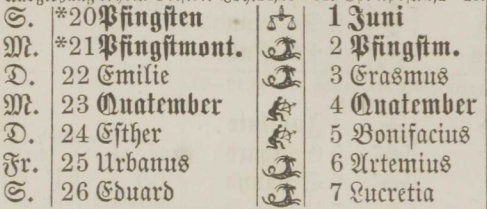 S. *20 Pfingsten 1 Juni
M. *21 Pfingstmont. 2 Pfingstm.
D. 22 Emilie 3 Erasmus
M. 23 Quatember 4 Quatember
D. 24 Esther 5 Bonifacius
Fr. 25 Urbanus 6 Artemius
S. 26 Eduard 7 Lucretia